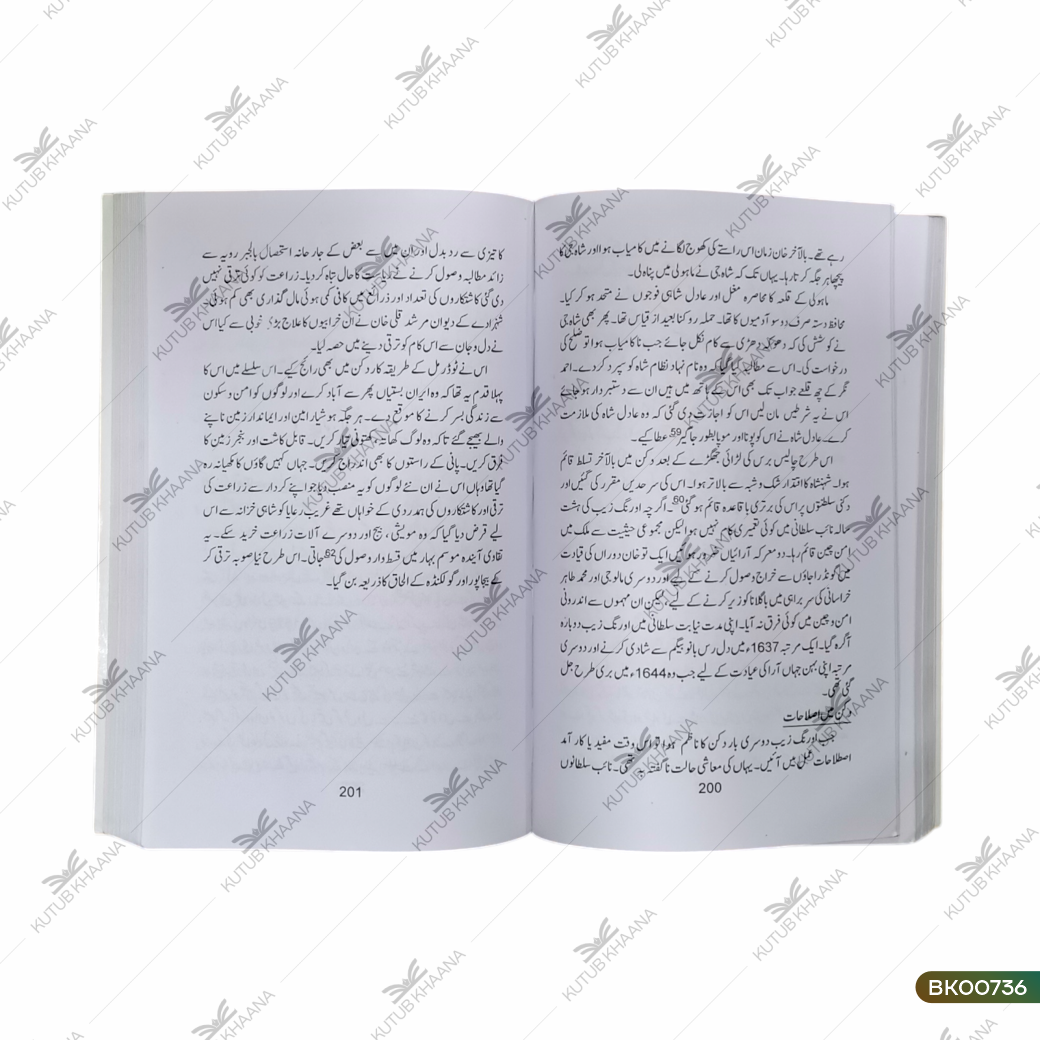 رہے تھے۔ بالآخر خان زمان اس راستے کی کھوج لگانے میں کامیاب ہوا اور شاہ جی کا
پیچھا ہر جگہ کرتا رہا۔ یہاں تک کہ شاہ جی نے ماہولی میں پناہ لی۔
ماہولی کے قلعہ کا محاصرہ مغل اور عادل شاہی فوجوں نے متحد ہو کر کیا۔
محافظ دستہ صرف دو سو آدمیوں کا تھا۔ حملہ روکنا بعید از قیاس تھا۔ پھر بھی شاہ جی
نے کوشش کی کہ دھوکہ دھڑی سے کام نکل جائے جب ناکامیاب ہوا تو صلح کی
درخواست کی۔ اس سے مطالبہ کیا گیا کہ وہ نام نہاد نظام شاہ کو سپرد کر دے۔ احمد
نگر کے چھ قلعے جو اب تک بھی اس کے ہاتھ میں ہیں ان سے دستبردار ہو جائے
اس نے یہ شرطیں مان لیں اس کو اجازت دی گئی کہ وہ عادل شاہ کی ملازمت
کرے۔ عادل شاہ نے اس کو پونا اور موپا بطور جاگیر59 عطا کیے۔
اس طرح چالیس برس کی لڑائی جھگڑے کے بعد دکن میں بالآخر تسلط قائم
ہوا۔ شہنشاہ کا اقتدار شک و شبہ سے بالاتر ہوا۔ اس کی سرحدیں مقرر کی گئیں اور
دکنی سلطنتوں پر اس کی برتری باقاعدہ قائم ہو گئی60۔ اگرچہ اورنگ زیب کی ہشت
سالہ نائب سلطانی میں کوئی تعمیری کام نہیں ہوا لیکن مجموعی حیثیت سے ملک میں
امن چین قائم رہا۔ دو معرکہ آرائیاں ضرور ہوئیں ایک تو خان دوراں کی قیادت
میں گونڈ راجاؤں سے خراج وصول کرنے کے لیے اور دوسری مالوجی اور محمد طاہر
خراسانی کی سربراہی میں باگلانا کو زیر کرنے کے لیے، لیکن ان مہموں سے اندرونی
امن و چین میں کوئی فرق نہ آیا۔ اپنی مدت نیابت سلطانی میں اورنگ زیب دوبارہ
آگرہ گیا۔ ایک مرتبہ 1637ء میں دل رس بانو بیگم سے شادی کرنے اور دوسری
مرتبہ اپنی بہن جہاں آرا کی عیادت کے لیے جب وہ 1644ء میں بری طرح جل
گئی تھی۔
دکن میں اصلاحات
جب اورنگ زیب دوسری بار دکن کا ناظم ہوا تو اس وقت مفید یا کار آمد
اصطلاحات عمل میں آئیں۔ یہاں کی معاشی حالت ناگفتہ بہ تھی۔ نائب سلطانوں
200
کا تیزی سے رد بدل اور ان میں سے بعض کے جارحانہ استحصال بالجبر رویہ سے
زائد مطالبہ وصول کرنے نے ریاست کا حال تباہ کر دیا۔ زراعت کو کوئی ترقی نہیں
دی گئی کاشتکاروں کی تعداد اور ذرائع میں کافی کمی ہوئی مال گذاری بھی کم ہوئی۔
شہزادے کے دیوان مرشد قلی خان نے ان خرابیوں کا علاج بڑی خوبی سے کیا اس
نے دل و جان سے اس کام کو ترقی دینے میں حصہ لیا۔
اس نے ٹوڈرمل کے طریقہ کار دکن میں بھی رائج کیے۔ اس سلسلے میں اس کا
پہلا قدم یہ تھا کہ وہ ایران بستیاں پھر سے آباد کرے اور لوگوں کو امن و سکون
سے زندگی بسر کرنے کا موقع دے۔ ہر جگہ ہوشیار امین اور ایماندار زمین ناپنے
والے بھیجے گئے تاکہ وہ لوگ کھاتہ، کھتونی تیار کریں۔ قابل کاشت اور بنجر زمین کا
فرق کریں۔ پانی کے راستوں کا بھی اندراج کریں۔ جہاں کہیں گاؤں کا مکھیا نہ رہ
گیا تھا وہاں اس نے ان نئے لوگوں کو یہ منصب دیا جو اپنے کردار سے زراعت کی
ترقی اور کاشتکاروں کی ہمدردی کے خواہاں تھے غریب رعایا کو شاہی خزانہ سے اس
لیے قرض دیا گیا کہ وہ مویشی، بیج اور دوسرے آلات زراعت خرید سکے۔ یہ
تقاوی آیندہ موسم بہار میں قسط وار وصول کی62جاتی۔ اس طرح نیا صوبہ ترقی کر
کے بیجاپور اور گولکنڈہ کے الحاق کا ذریعہ بن گیا۔
201
KUTUB KHAANA
BK00736